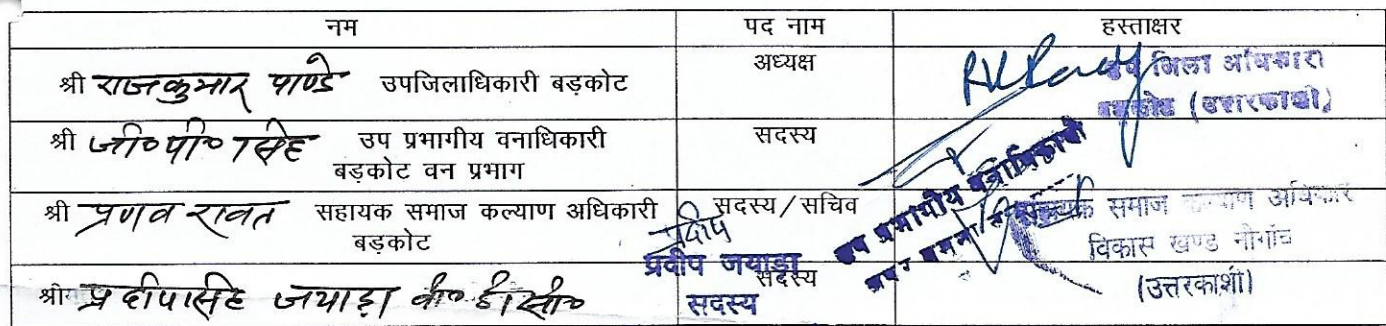 नम पद नाम हस्ताक्षर
श्री राजकुमार पाण्डे उपजिलाधिकारी बड़कोट अध्यक्ष
उप जिला अधिकारी
बड़कोट (उत्तरकाशी)
श्री जी०पी० सिंह उप प्रभागीय वनाधिकारी सदस्य
बड़कोट वन प्रभाग
उप प्रभागीय वनाधिकारी
श्री प्रणव रावत सहायक समाज कल्याण अधिकारी सदस्य/सचिव
बड़कोट
सहायक समाज कल्याण अधिकार
विकास खण्ड नौगांव
(उत्तरकाशी)
प्रदीप
प्रदीप जयाड़ा
सदस्य
श्री प्रदीपसिंह जयाड़ा सदस्य